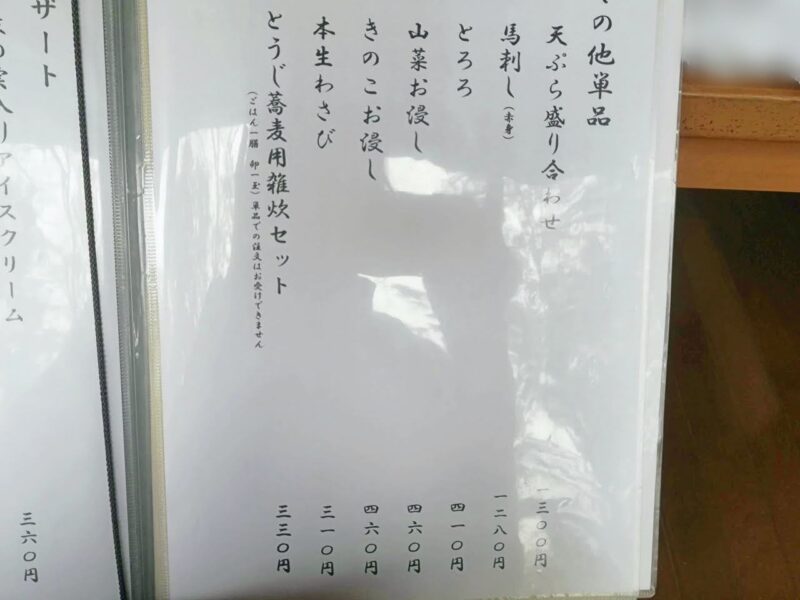 の他単品
天ぷら盛り合わせ 一三〇〇円
馬刺し(赤身) 一二八〇円
とろろ 四一〇円
山菜お浸し 四六〇円
きのこお浸し 四六〇円
本生わさび 三一〇円
とうじ蕎麦用雑炊セット 三三〇円
(ごはん一膳 卵一玉)単品での注文はお受けできません
ザート
の実入りアイスクリーム 三六〇円